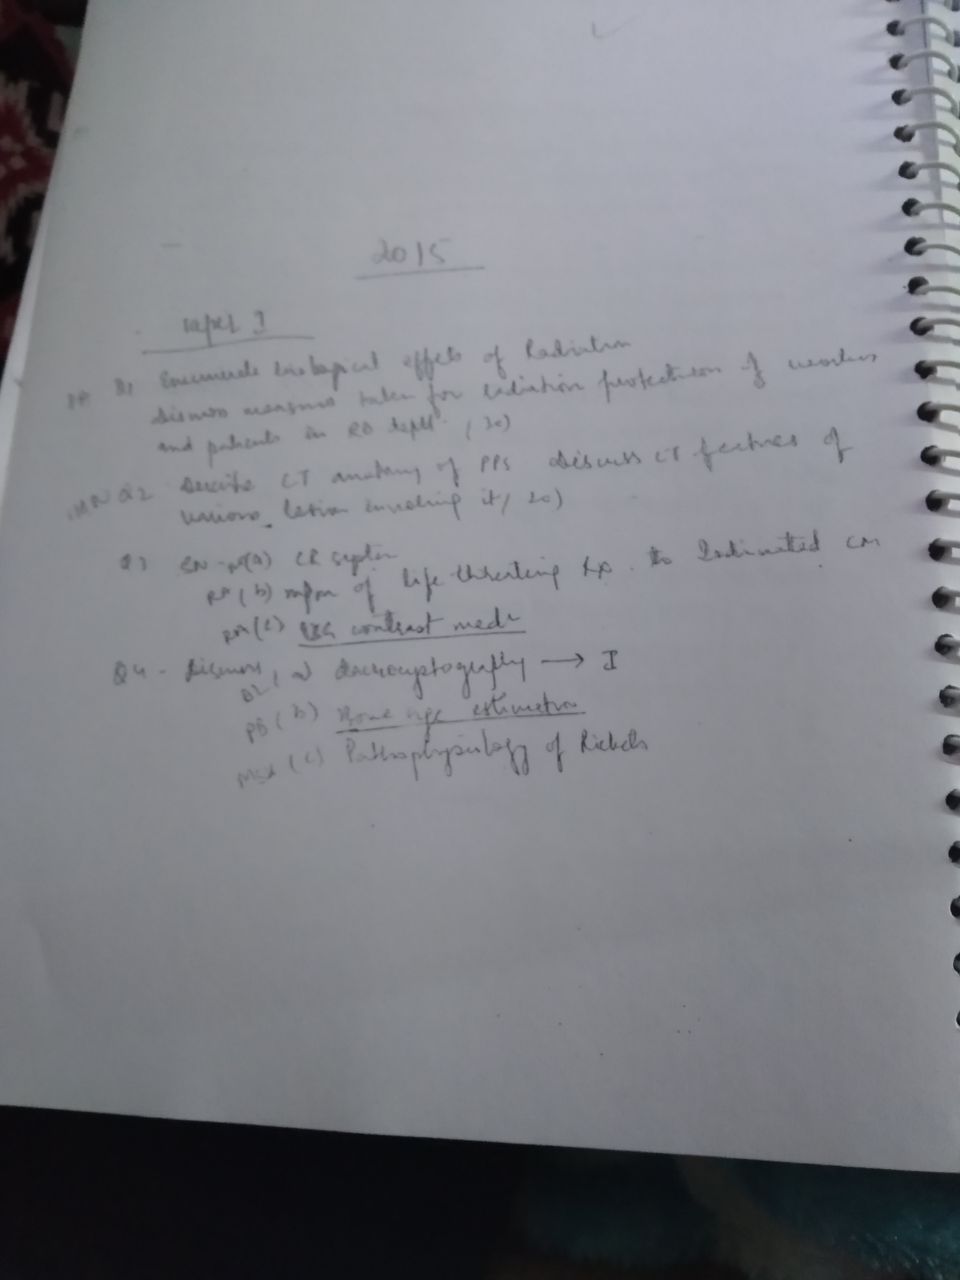 2015
Paper I
Q1 Enumerate biological effects of Radiation
Discuss measures taken for radiation protection of workers
and patients in RD deptt. (30)
Q2 Describe CT anatomy of PPS Discuss CT features of
various lesion involving it, 20)
Q3 SN - (a) CR system
(b) of life threating to Iodinated CM
(c) contrast media
Q4 - Discuss, a) dacrocystography → I
(b) Bone age estimation
(c) Pathophysiology of Rickets